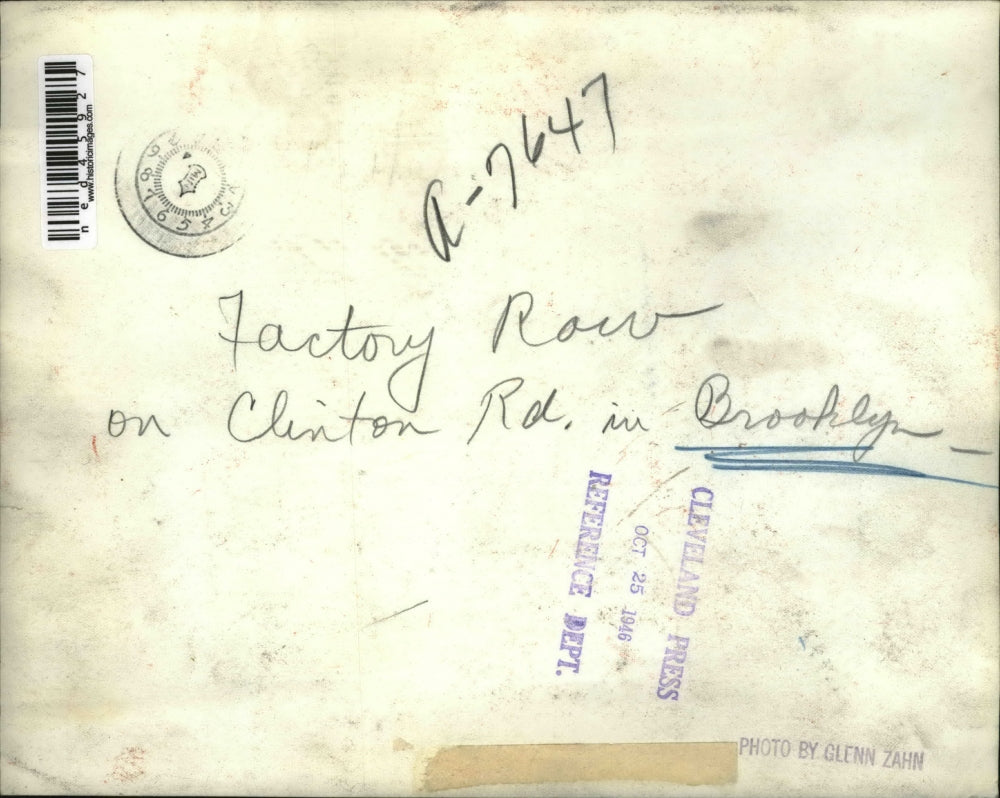 ned45927
www.historicimages.com
9 8 7 6 5 4 3
A-7647
Factory Row
on Clinton Rd. in Brooklyn -
CLEVELAND PRESS
OCT 25 1946
REFERENCE DEPT.
PHOTO BY GLENN ZAHN